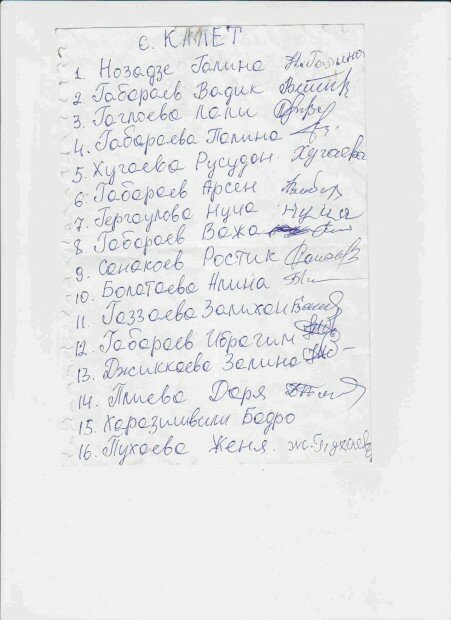 с. КЛПЕТ
1. Нозадзе Галина
2 Габараев Вадик
3. Гаглоева Лали
4. Габараева Полина
5. Хугаева Русудон Хугаева
6 Габараев Арсен
7. Гергаулова Нуча Нуча
8 Габараев Важа
9. Санакоев Ростик
10. Болатаева Алина
11. Газзаева Залихан
12. Габараев Ибрагим
13. Джиккаева Залина
14. Плиева Даря
15. Харазишвили Бадро
16. Пухаева Женя. Ж. Пухаева